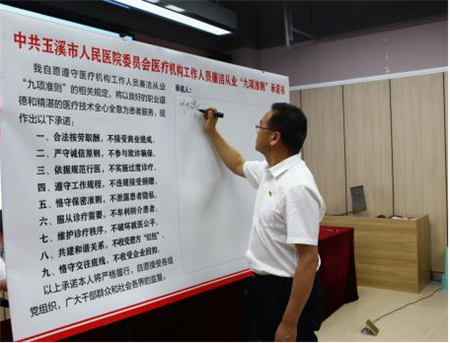 中共玉溪市人民医院委员会医疗机构工作人员廉洁从业“九项准则”承诺书
我自愿遵守医疗机构工作人员廉洁从业
“九项准则”的相关规定，将以良好的职业道
德和精湛的医疗技术全心全意为患者服务，现
作出以下承诺：
一、合法按劳取酬，不接受商业提成。
二、严守诚信原则，不参与欺诈骗保。
三、依据规范行医，不实施过度诊疗。
四、遵守工作规程，不违规接受捐赠。
五、恪守保密准则，不泄露患者隐私。
六、服从诊疗需要，不牟利转介患者。
七、维护诊疗秩序，不破坏就医公平。
八、共建和谐关系，不收受患方“红包”。
九、恪守交往底线，不收受企业回扣。
以上承诺本人将严格履行，自愿接受各级
党组织，广大干部群众和社会各界的监督。